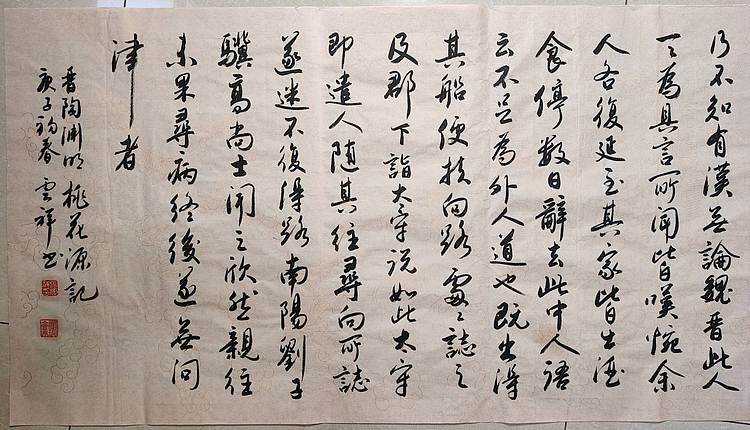 乃不知有漢无論魏晋此人
一一為具言所聞皆嘆惋余
人各復延至其家皆出酒
食停数日辭去此中人語
云不足為外人道也既出得
其船便扶向路處〻誌之
及郡下詣太守説如此太守
即遣人随其往尋向所誌
遂迷不復得路南陽劉子
驥高尚士聞之欣然親往
未果尋病終後遂無問
津者
晋陶淵明桃花源記
庚子初春雲祥書